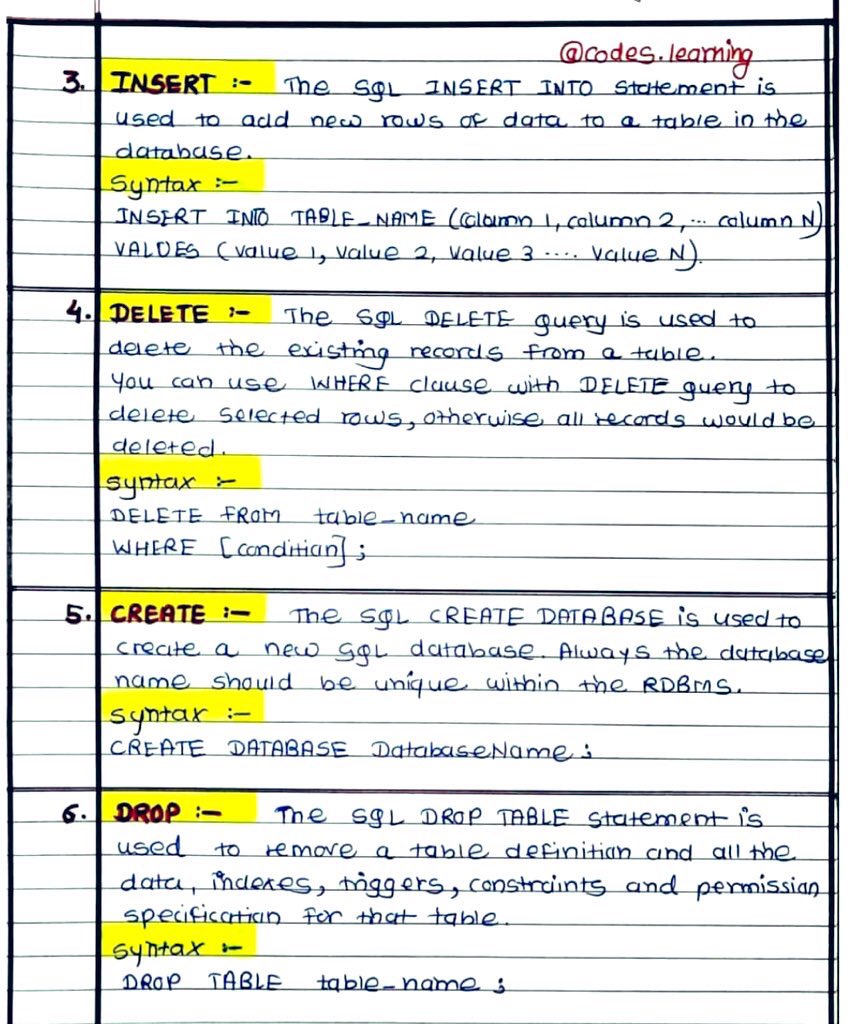 @codes.learning
3. INSERT :- The SQL INSERT INTO statement is
used to add new rows of data to a table in the
database.
Syntax :-
INSERT INTO TABLE_NAME (Column 1, column 2, ... column N)
VALUES (Value 1, Value 2, Value 3 .... Value N).
4. DELETE :- The SQL DELETE query is used to
delete the existing records from a table.
You can use WHERE clause with DELETE query to
delete selected rows, otherwise all records would be
deleted.
syntax :-
DELETE FROM table_name
WHERE [condition] ;
5. CREATE :- The SQL CREATE DATABASE is used to
create a new SQL database. Always the database
name should be unique within the RDBMS.
syntax :-
CREATE DATABASE DatabaseName ;
6. DROP :- The SQL DROP TABLE statement is
used to remove a table definition and all the
data, indexes, triggers, constraints and permission
specification for that table.
syntax :-
DROP TABLE table_name ;